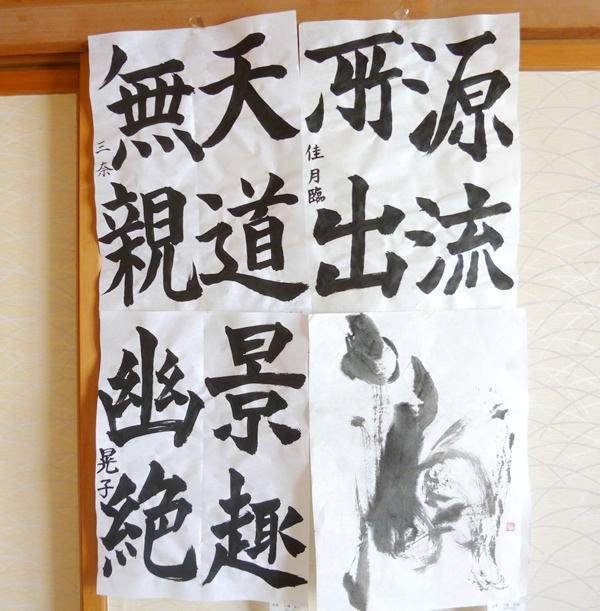 源流
所出
佳月臨
天道
無親
三奈
景趣
幽絶
晃子